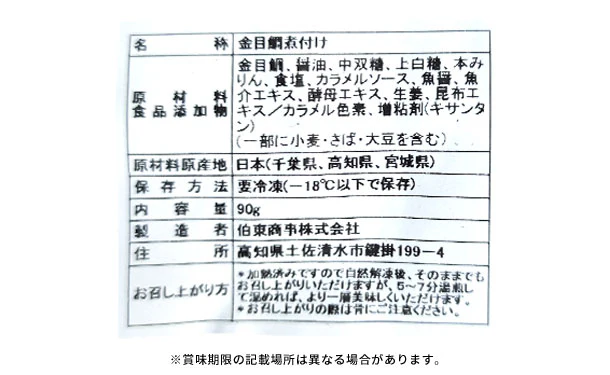 名 称 金目鯛煮付け
原材料 食品添加物 金目鯛、醤油、中双糖、上白糖、本み
りん、食塩、カラメルソース、魚醤、魚
介エキス、酵母エキス、生姜、昆布エ
キス／カラメル色素、増粘剤(キサンタ
ン)
(一部に小麦・さば・大豆を含む)
原材料原産地 日本(千葉県、高知県、宮城県)
保存方法 要冷凍(－18℃以下で保存)
内容量 90g
製造者 伯東商事株式会社
住 所 高知県土佐清水市鍵掛199－4
お召し上がり方 *加熱済みですので自然解凍後、そのままでも
お召し上がりいただけますが、5～7分湯煎し
て温めれば、より一層美味しくいただけます。
*お召し上がりの際は骨にご注意ください。
※賞味期限の記載場所は異なる場合があります。